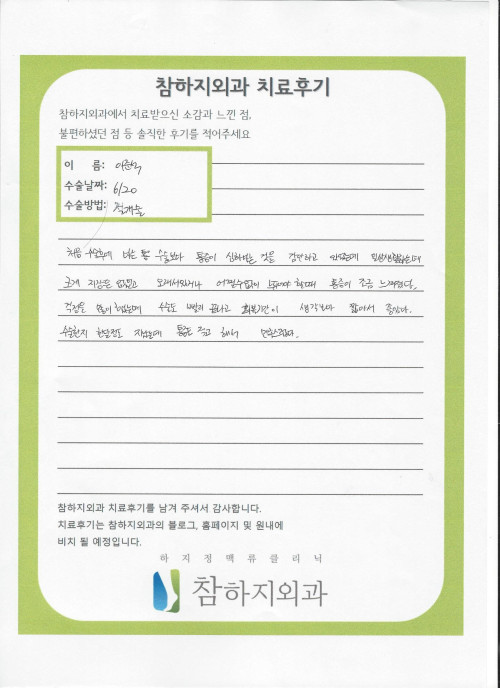 참하지외과 치료후기
참하지외과에서 치료받으신 소감과 느낀 점,
불편하셨던 점 등 솔직한 후기를 적어주세요
이 름:
수술날짜: 6/20
수술방법: 절개술
처음 수술후에 수술보다 통증이 심하다는 것을 일상생활하는데
크게 지장은 없었고 오래서있거나 통증이 조금 느껴졌다.
걱정을 많이 했었는데 수술도 빨리 끝나고 회복기간이 생각보다 짧아서 좋았다.
수술한지 한달정도 지났는데 통증도 적고 해서 만족스럽다.
참하지외과 치료후기를 남겨 주셔서 감사합니다.
치료후기는 참하지외과의 블로그, 홈페이지 및 원내에
비치 될 예정입니다.
하지정맥류클리닉
참하지외과